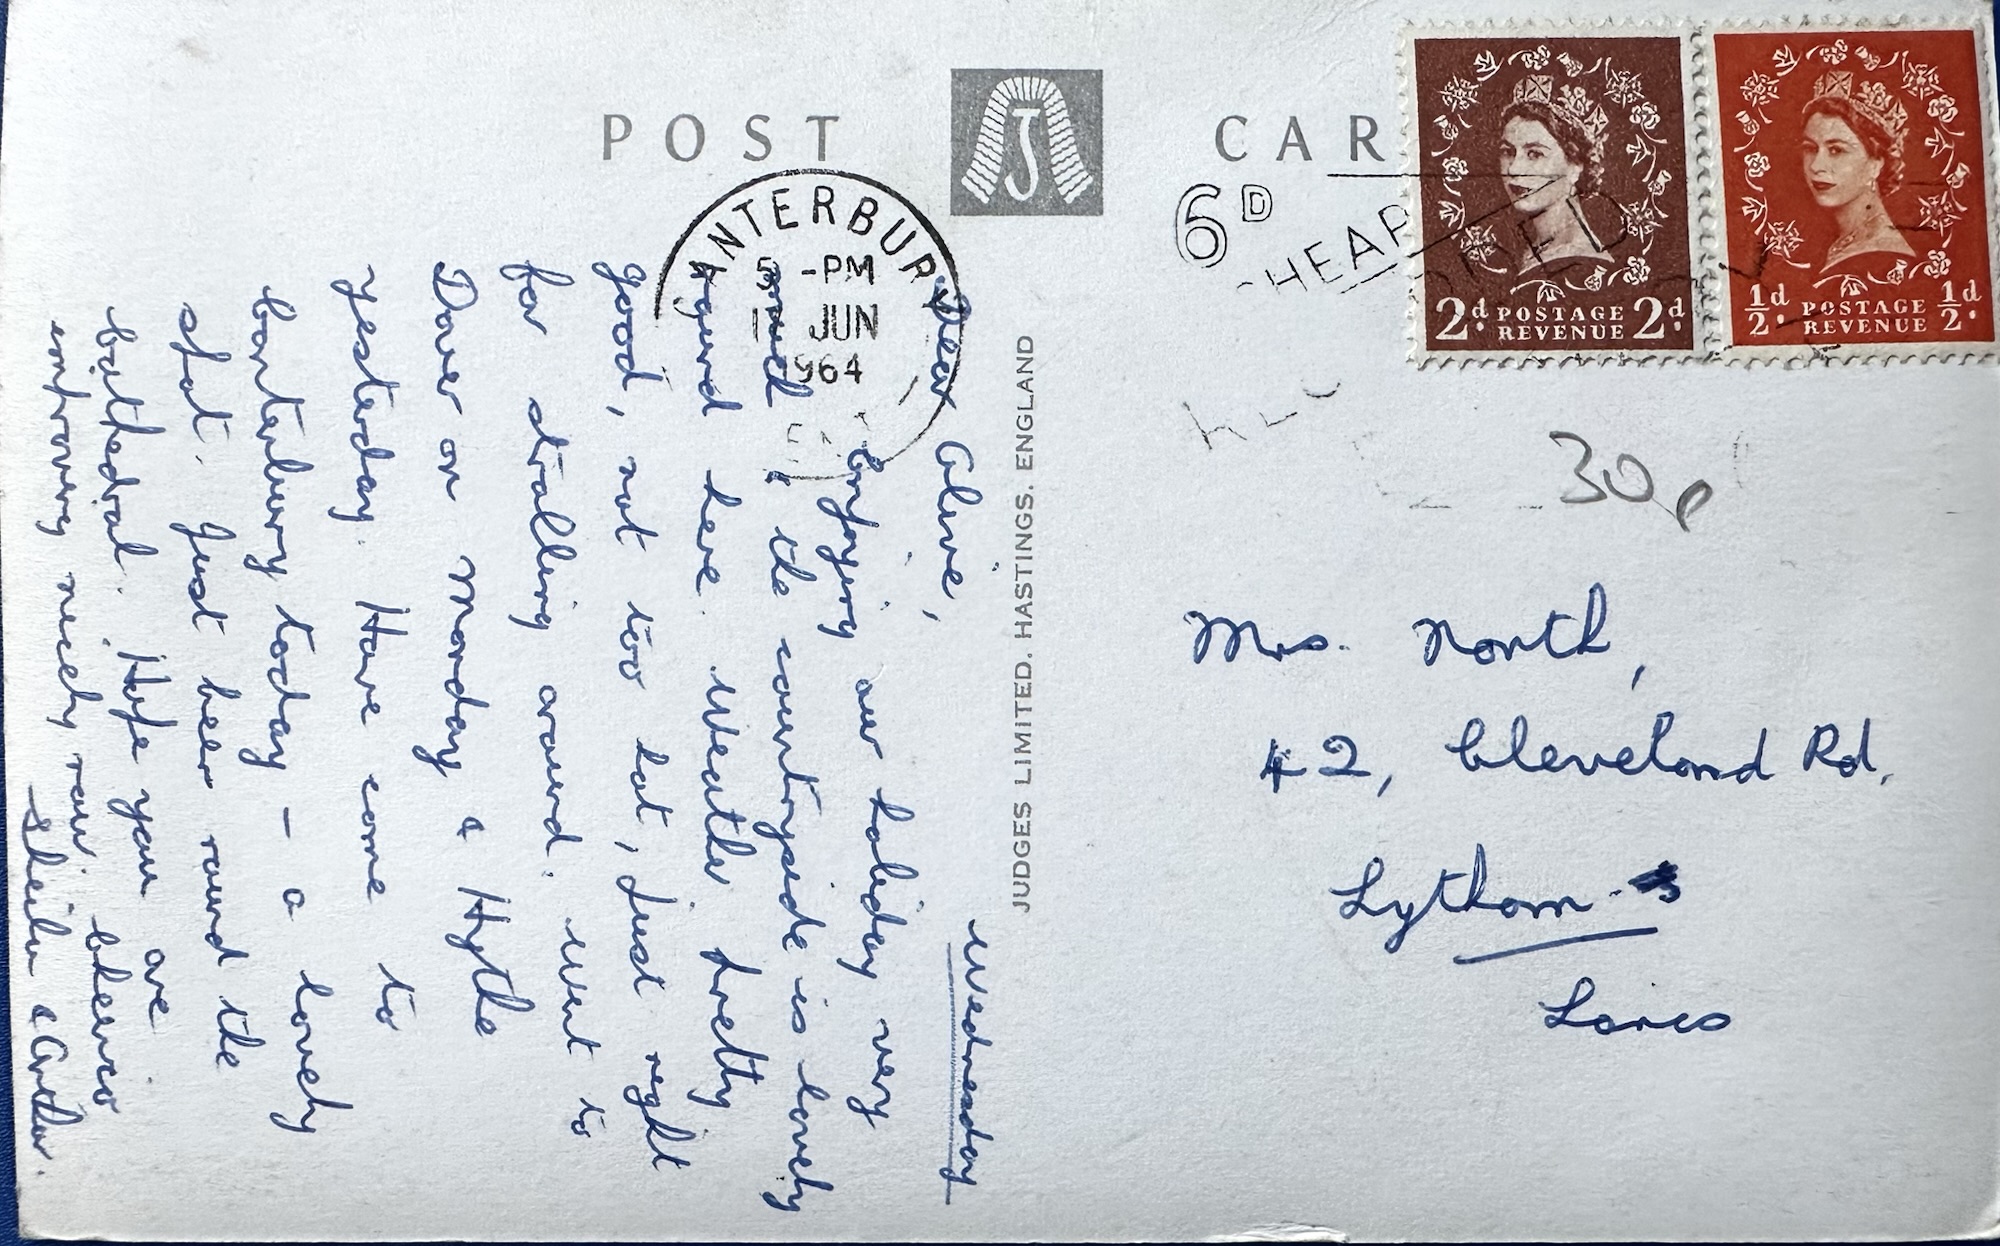 POST CARD
J
CANTERBURY
5 -PM
JUN
1964
6D
CHEAP
2d. POSTAGE REVENUE 2d.
½d. POSTAGE REVENUE ½d.
JUDGES LIMITED. HASTINGS. ENGLAND
30p
Wednesday
Dear Olive,
Enjoying our holiday very
much & the countryside is lovely
around here. Weather pretty
good, not too hot, just right
for strolling around. Went to
Dover on Monday & Hythe
yesterday. Have come to
Canterbury today – a lovely
spot. Just been round the
Cathedral. Hope you are
improving nicely now. Cheerio
Sheila & Arthur.
Mrs. North,
42, Cleveland Rd,
Lytham
Lancs